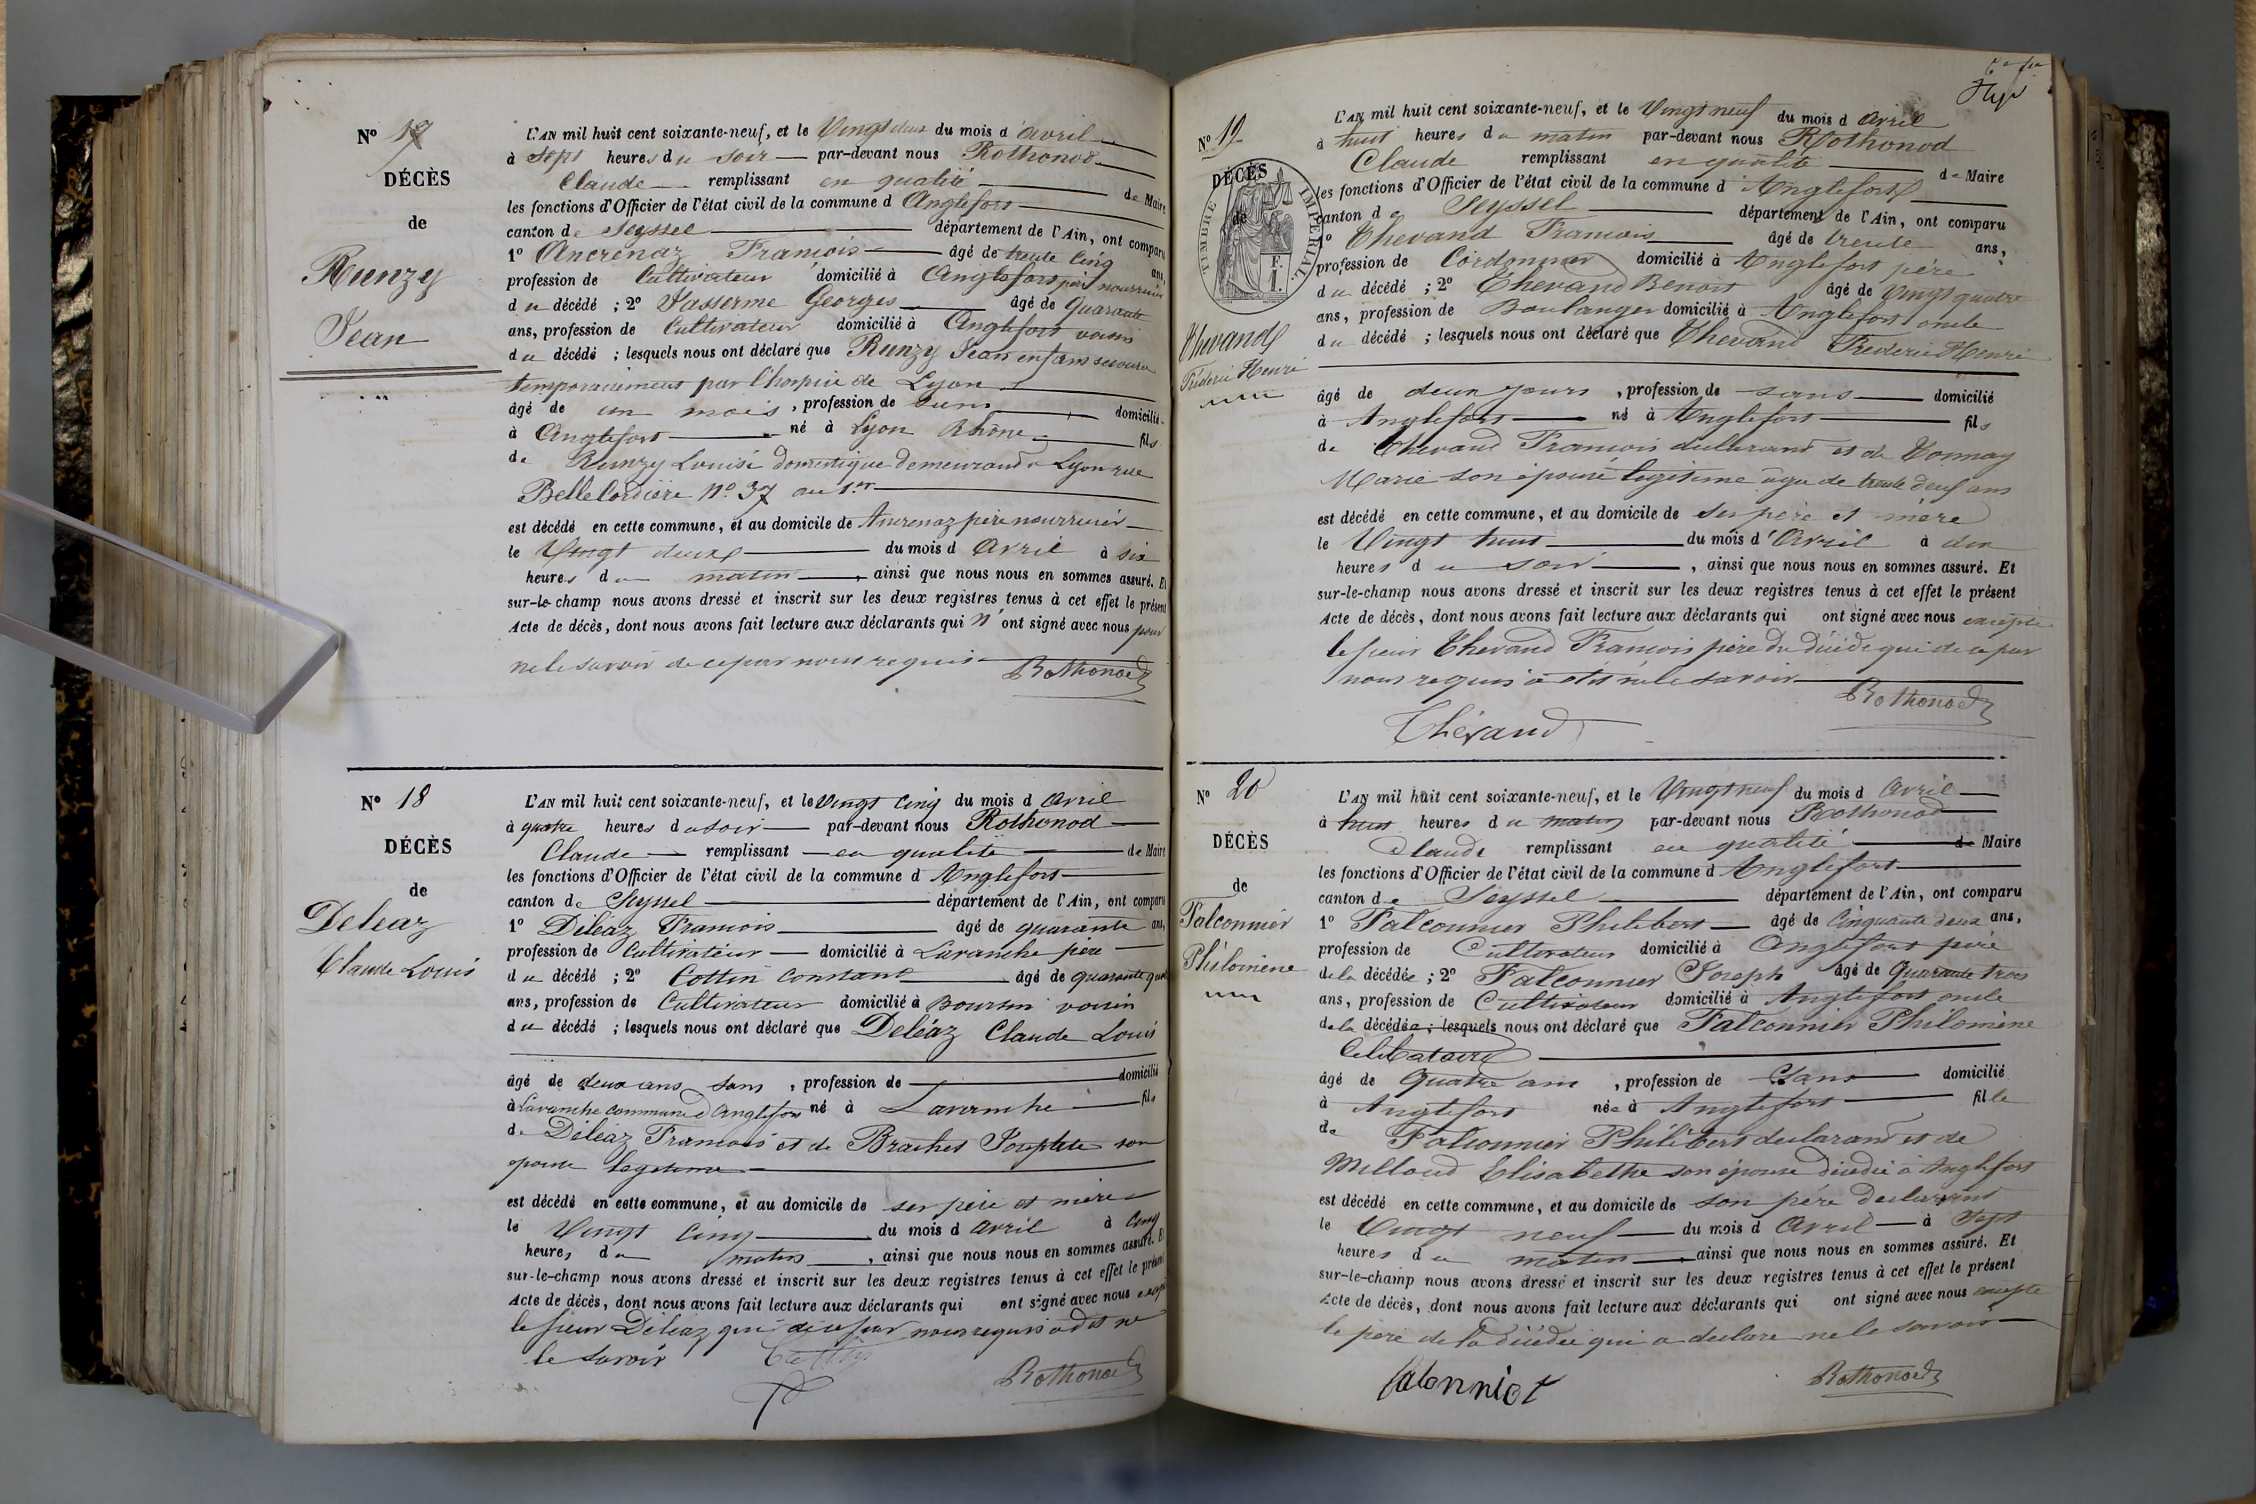 N° 17
DÉCÈS
de
Runzy
Jean
L'AN mil huit cent soixante-neuf, et le Vingt deux du mois d'avril
à Sept heures du soir par-devant nous Rothonod
Claude remplissant en qualité de Maire
les fonctions d'Officier de l'état civil de la commune d Anglefort
canton de Seyssel département de l'Ain, ont comparu
1° Ancrenaz François âgé de trente cinq ans,
profession de Cultivateur domicilié à Anglefort père nourricier
du décédé ; 2° Vasserme Georges âgé de Quarante
ans, profession de Cultivateur domicilié à Anglefort voisin
du décédé ; lesquels nous ont déclaré que Runzy Jean enfant secouru
temporairement par l'hospice de Lyon
âgé de un mois, profession de sans domicilié
à Anglefort né à Lyon Rhône fils
de Runzy Louise domestique demeurand à Lyon rue
Belle Cordière N° 37 au 1er
est décédé en cette commune, et au domicile de Ancrenaz père nourricier
le Vingt deux du mois d Avril à six
heures du matin, ainsi que nous nous en sommes assuré. Et
sur-le-champ nous avons dressé et inscrit sur les deux registres tenus à cet effet le présent
Acte de décès, dont nous avons fait lecture aux déclarants qui n'ont signé avec nous pour
ne le savoir de ce par nous requis
Rothonod
N° 18
DÉCÈS
de
Deleaz
Claude Louis
L'AN mil huit cent soixante-neuf, et le Vingt cinq du mois d Avril
à quatre heures du soir par-devant nous Rothonod
Claude remplissant en qualité de Maire
les fonctions d'Officier de l'état civil de la commune d Anglefort
canton de Seyssel département de l'Ain, ont comparu
1° Déléaz François âgé de quarante ans,
profession de Cultivateur domicilié à Lavanche père
du décédé ; 2° Cottin Constant âgé de quarante quatre
ans, profession de Cultivateur domicilié à Boursin voisin
du décédé ; lesquels nous ont déclaré que Deléaz Claude Louis
âgé de deux ans sans, profession de domicilié
à Lavanche commune d'Anglefort né à Lavanche fils
de Déléaz François et de Brachet Josephte son
épouse légitime
est décédé en cette commune, et au domicile de ses père et mère
le Vingt Cinq du mois d Avril à Cinq
heures du matin, ainsi que nous nous en sommes assuré. Et
sur-le-champ nous avons dressé et inscrit sur les deux registres tenus à cet effet le présent
Acte de décès, dont nous avons fait lecture aux déclarants qui ont signé avec nous excepté
le sieur Déléaz qui de ce par nous requis a dit ne
le savoir
Rothonod
N° 19
DÉCÈS
de
TIMBRE IMPERIAL
Thevand
Fréderic Henri
L'AN mil huit cent soixante-neuf, et le Vingt neuf du mois d Avril
à huit heures du matin par-devant nous Rothonod
Claude remplissant en qualité de Maire
les fonctions d'Officier de l'état civil de la commune d'Anglefort
canton de Seyssel département de l'Ain, ont comparu
1° Thevand François âgé de trente ans,
profession de Cordonnier domicilié à Anglefort père
du décédé ; 2° Thevand Benoit âgé de Vingt quatre
ans, profession de Boulanger domicilié à Anglefort oncle
du décédé ; lesquels nous ont déclaré que Thevand Fréderic Henri
âgé de deux jours, profession de sans domicilié
à Anglefort né à Anglefort fils
de Thevand François declarant et de Vonnay
Marie son épouse légitime agée de trente deux ans
est décédé en cette commune, et au domicile de ses père et mère
le Vingt huit du mois d'Avril à dix
heures du soir, ainsi que nous nous en sommes assuré. Et
sur-le-champ nous avons dressé et inscrit sur les deux registres tenus à cet effet le présent
Acte de décès, dont nous avons fait lecture aux déclarants qui ont signé avec nous excepté
le sieur Thevand François père du décédé qui de ce par
nous requis a dit ne le savoir
Rothonod
Thévand
N° 20
DÉCÈS
de
Falconnier
Philomène
L'AN mil huit cent soixante-neuf, et le Vingt neuf du mois d Avril
à huit heures du matin par-devant nous Rothonod
Claude remplissant en qualité de Maire
les fonctions d'Officier de l'état civil de la commune d Anglefort
canton de Seyssel département de l'Ain, ont comparu
1° Falconnier Philibert âgé de Cinquante deux ans,
profession de Cultivateur domicilié à Anglefort père
de la décédée ; 2° Falconnier Joseph âgé de Quarante trois
ans, profession de Cultivateur domicilié à Anglefort oncle
de la décédée ; lesquels nous ont déclaré que Falconnier Philomène
Celibataire
âgé de Quatre ans, profession de Sans domicilié
à Anglefort née à Anglefort fille
de Falconnier Philibert declarant et de
Milloud Elisabethe son épouse décédée à Anglefort
est décédé en cette commune, et au domicile de son père declarant
le Vingt neuf du mois d Avril à Sept
heures du matin, ainsi que nous nous en sommes assuré. Et
sur-le-champ nous avons dressé et inscrit sur les deux registres tenus à cet effet le présent
Acte de décès, dont nous avons fait lecture aux déclarants qui ont signé avec nous excepté
le père de la décédée qui a declaré ne le savoir
Rothonod